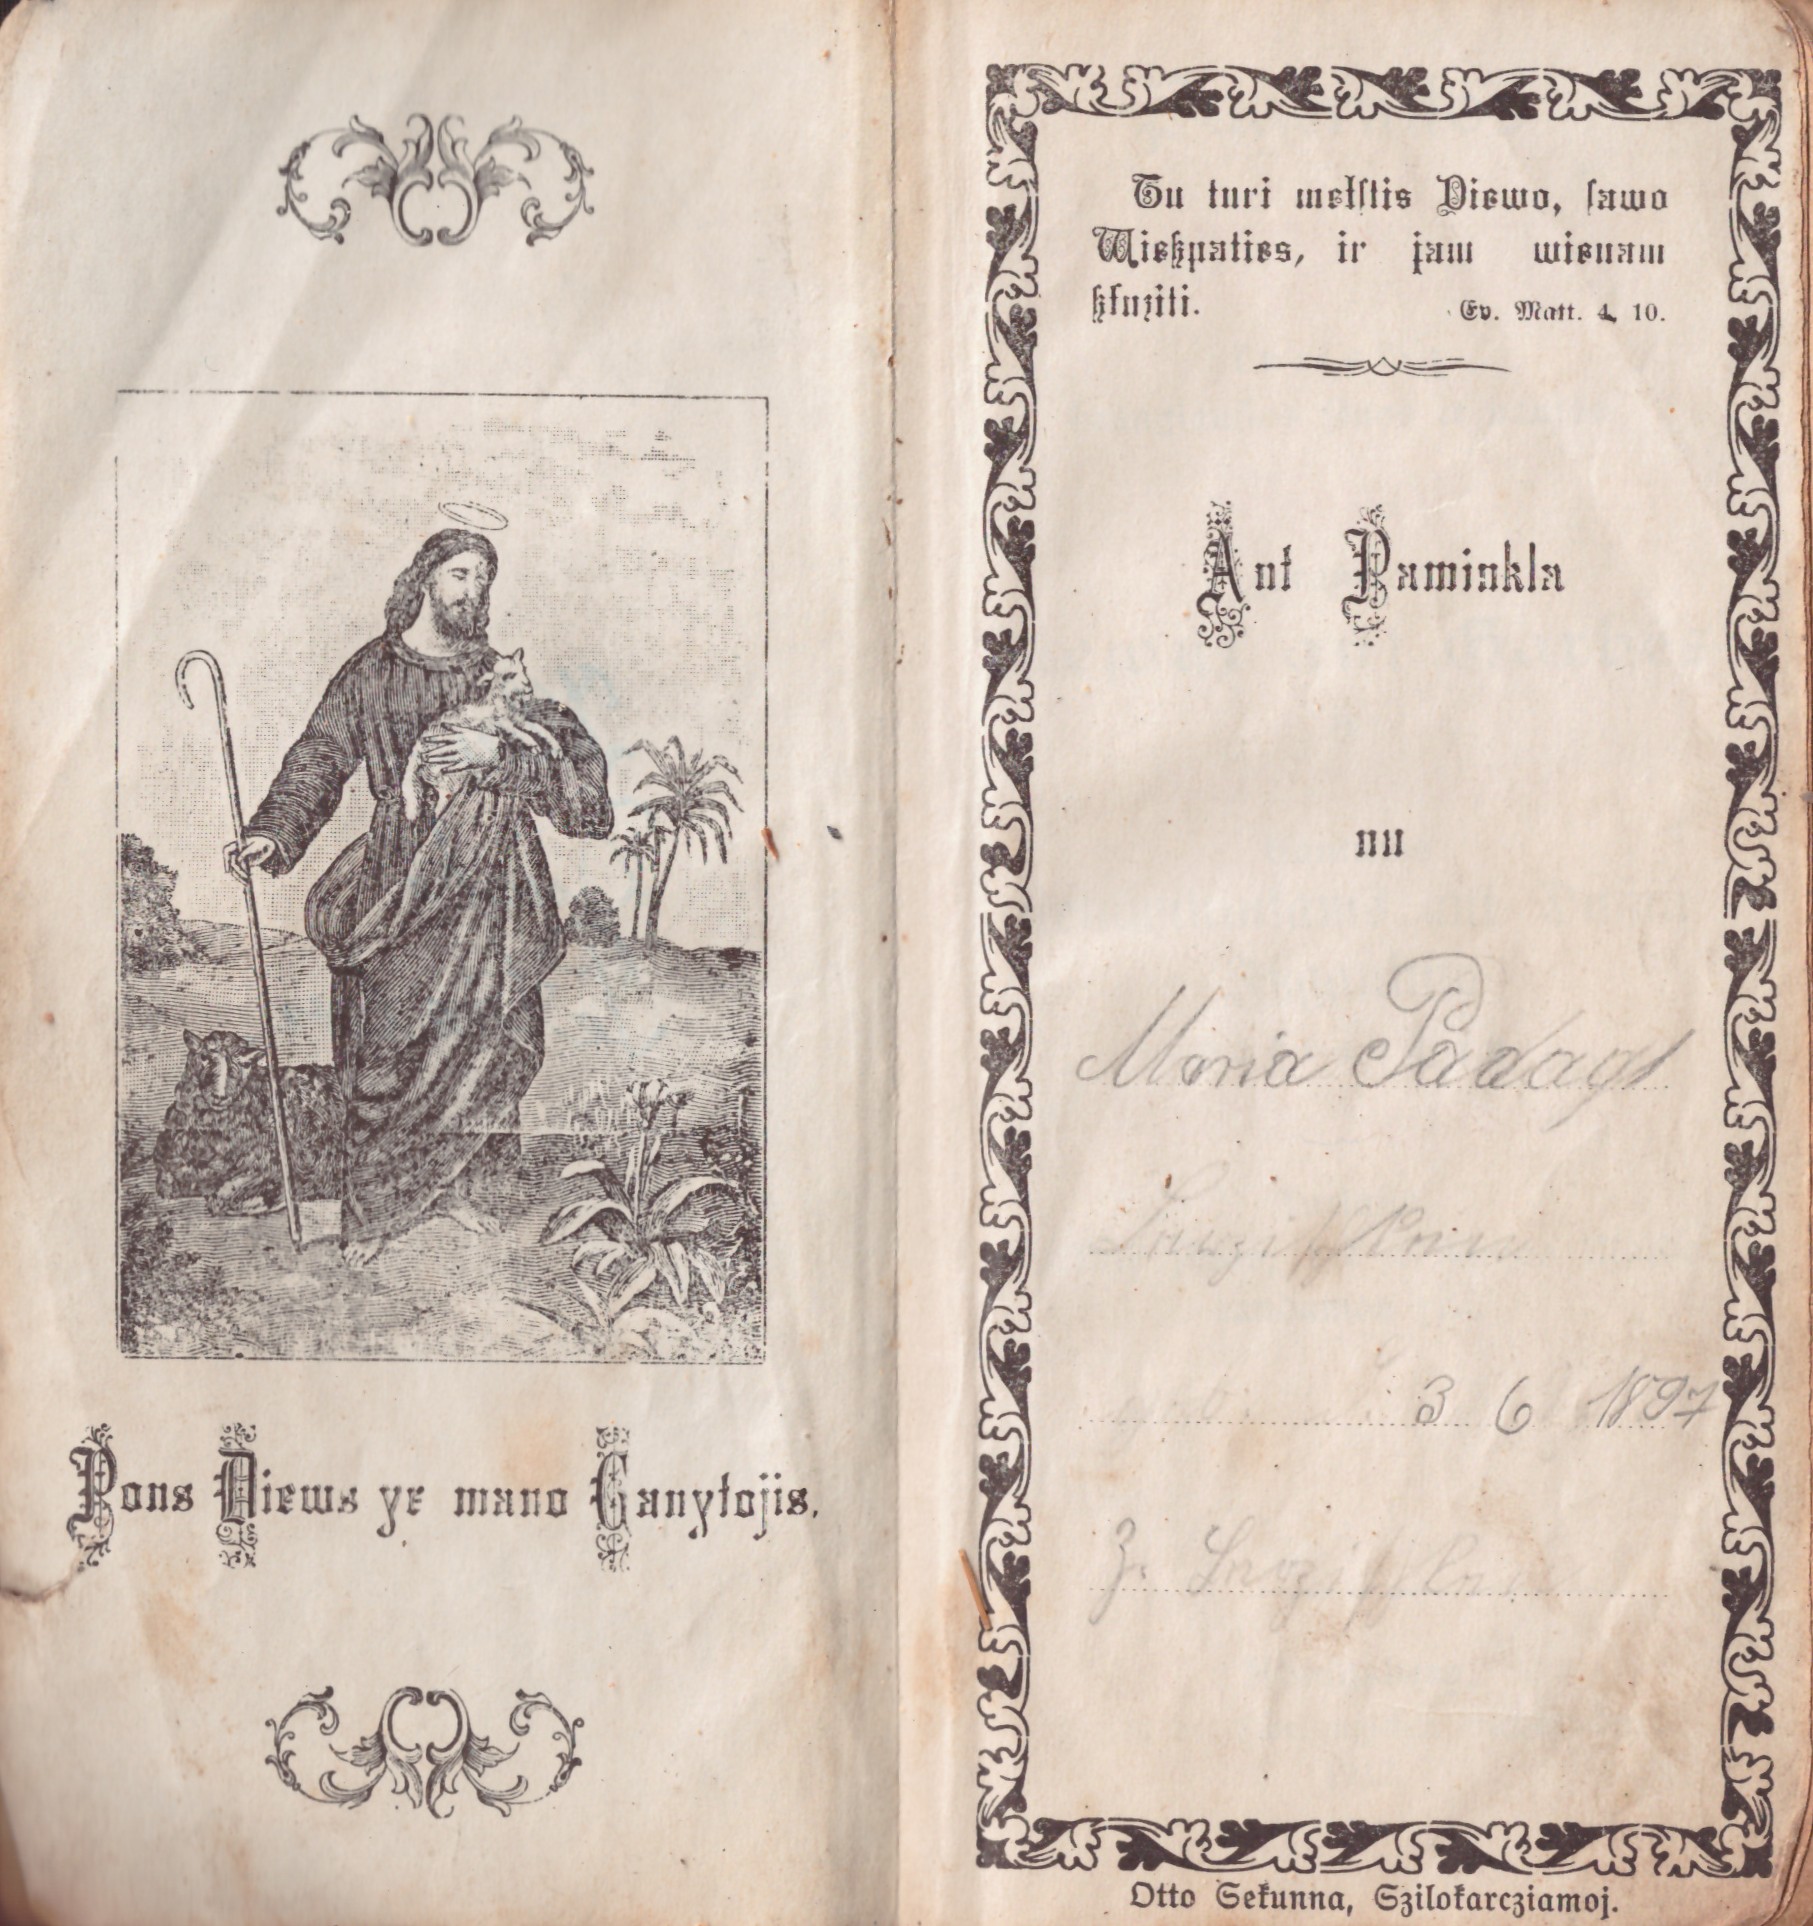 Pons Diews yr mano Ganytojis.
Tu turi melſtis Diewo, ſawo
Wießpaties, ir jam wienam
ßluziti.
Ev. Matt. 4, 10.
Ant Paminkla
nu
Maria
3 6 1897
Z.
Otto Sekunna, Szilokarcziamoj.